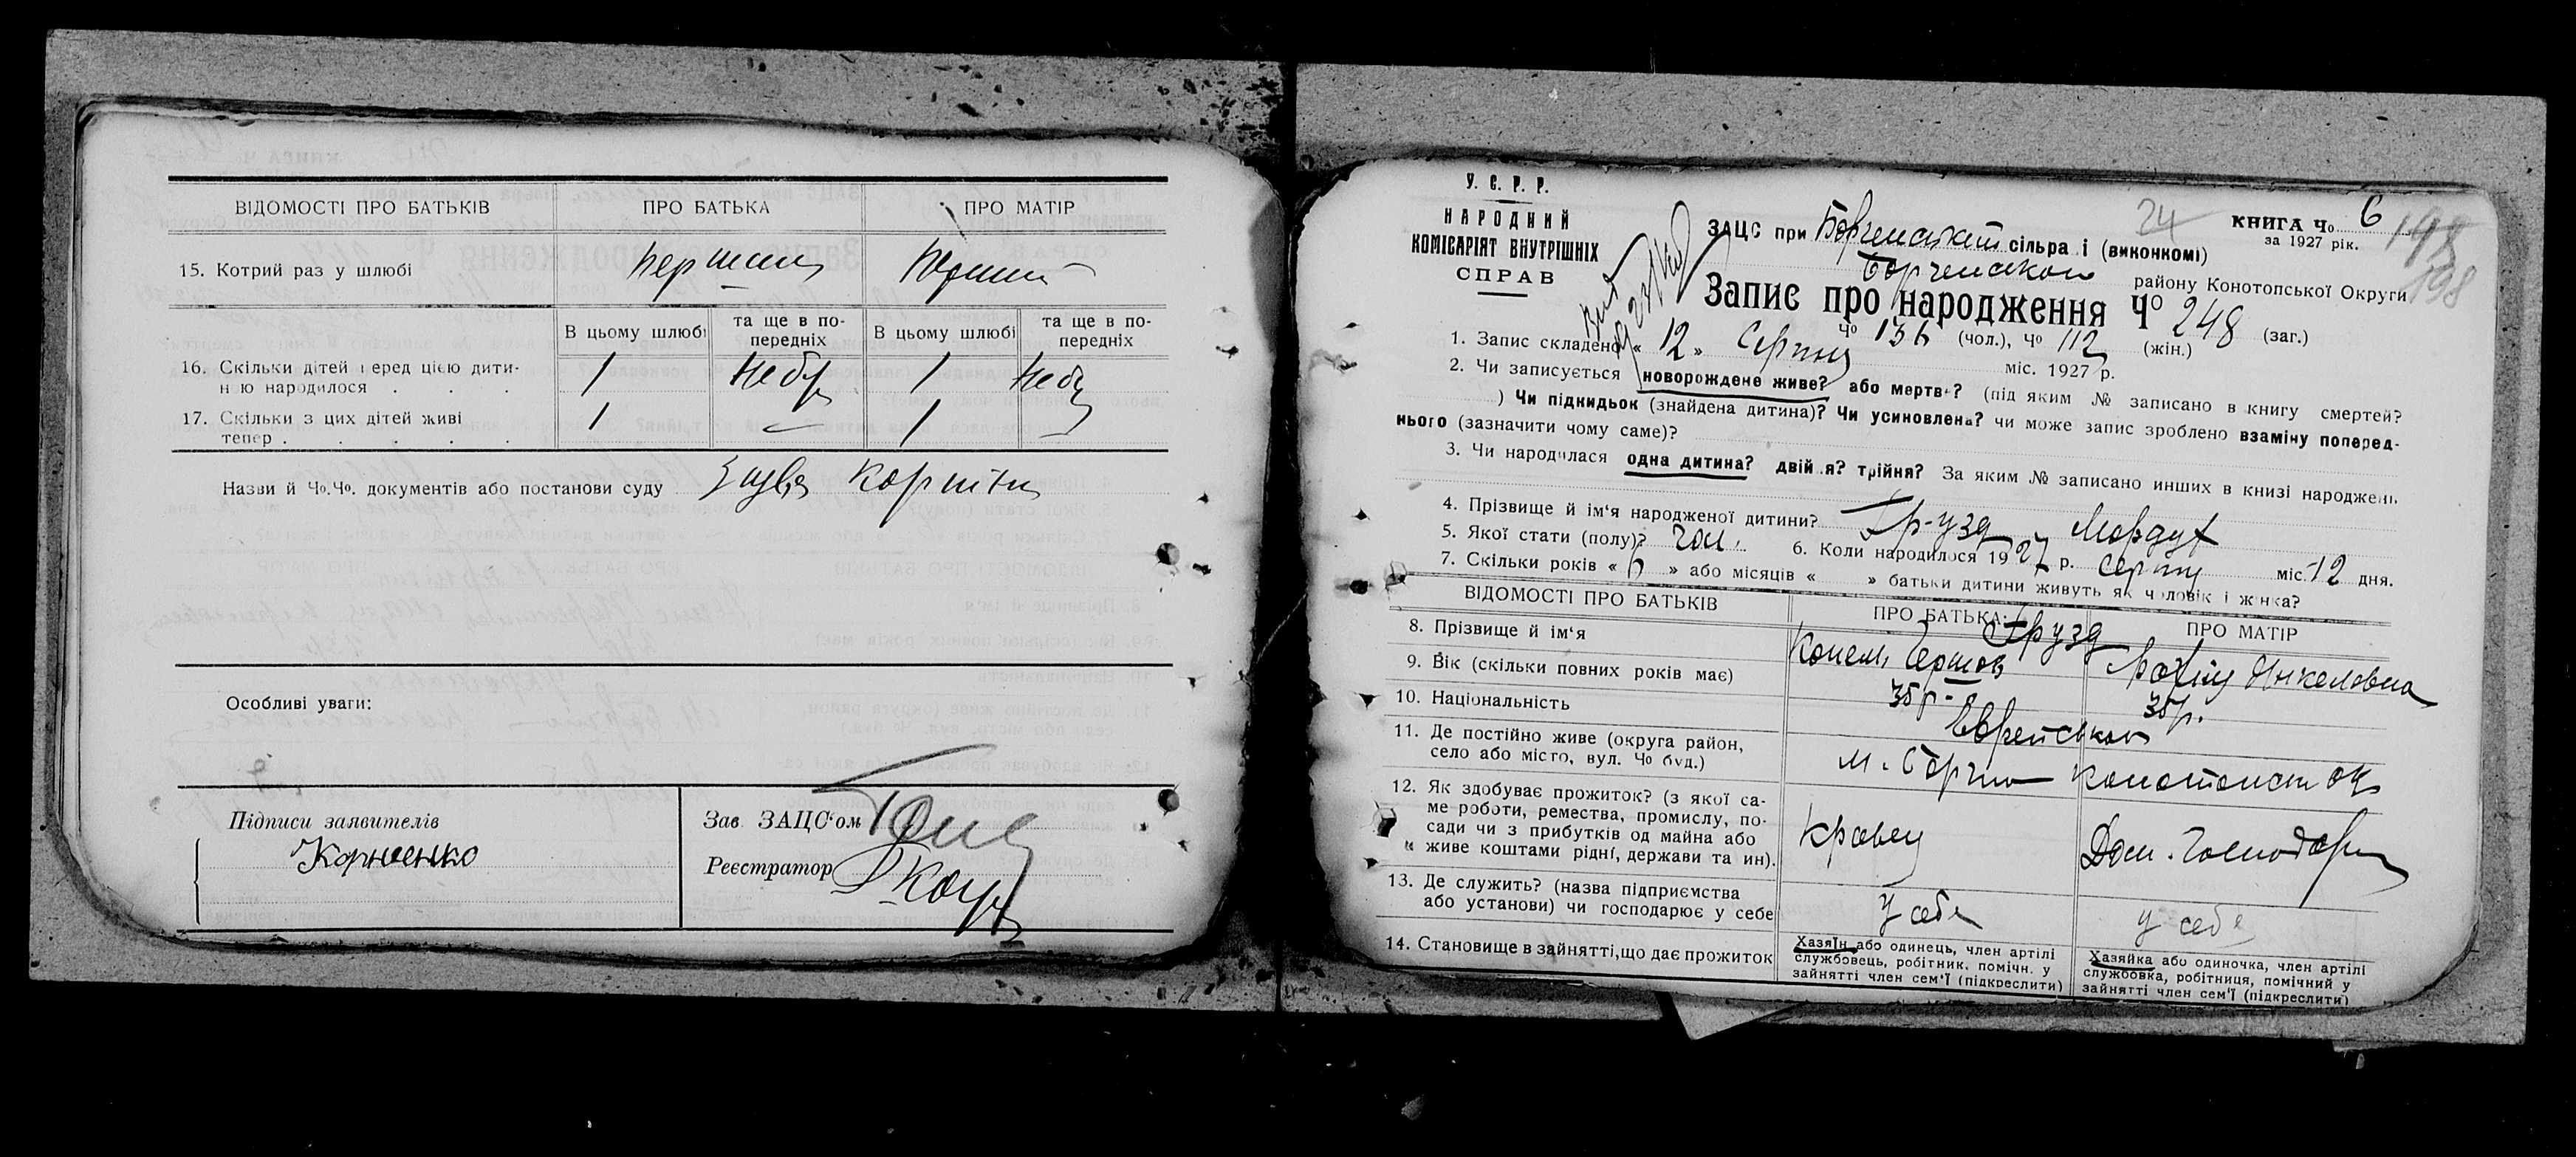 ВІДОМОСТІ ПРО БАТЬКІВ ПРО БАТЬКА ПРО МАТІР
15. Котрий раз у шлюбі
В цьому шлюбі та ще в по-передніх В цьому шлюбі та ще в по-передніх
16. Скільки дітей перед цією дити-
ною народилося . . . 1 1
17. Скільки з цих дітей живі
тепер . . . . . 1 1
Назви й Ч°.Ч°. документів або постанови суду
Особливі уваги:
Підписи заявителів
Корнюенко
Зав ЗАЦС'ом
Реєстратор
У. С. Р. Р.
НАРОДНИЙ
КОМІСАРІЯТ ВНУТРІШНІХ
СПРАВ
24
КНИГА Ч° 6
за 1927 рік.
198
198
ЗАЦС при сільра і (виконкомі)
району Конотопської Округи
Запис про народження Ч° 248 (заг.)
Ч° 136 (чол.), Ч° 112 (жін.)
1. Запис складено « 12 » Серпня міс. 1927 р.
2. Чи записується новорождене живе? або мертве? (під яким № записано в книгу смертей?
) Чи підкидьок (знайдена дитина)? Чи усиновлена? чи може запис зроблено взаміну поперед-
нього (зазначити чому саме)?
3. Чи народилася одна дитина? двійня? трійня? За яким № записано инших в книзі народжень
4. Прізвище й ім'я народженої дитини? Грузд Мордух
5. Якої стати (полу)? чол. 6. Коли народилося 1927 р. Серпня міс. 12 дня.
7. Скільки років « 6 » або місяців « » батьки дитини живуть як чоловік і жінка?
ВІДОМОСТІ ПРО БАТЬКІВ ПРО БАТЬКА ПРО МАТІР
8. Прізвище й ім'я Грузд
9. Вік (скільки повних років має) 35 р. 35 р.
10. Національність Еврейської
11. Де постійно живе (округа район,
село або місто, вул. Ч° буд.) м. Борзна Конотопськ ок
12. Як здобуває прожиток? (з якої са-
ме роботи, ремества, промислу, по-
сади чи з прибутків од майна або
живе коштами рідні, держави та ин). Кравец Дом. Господар
13. Де служить? (назва підприємства
або установи) чи господарює у себе у себе у себе
14. Становище в зайнятті, що дає прожиток
Хазяїн або одинець, член артілі
службовець, робітник, помічн. у
зайнятті член сем'ї (підкреслити)
Хазяйка або одиночка, член артілі
службовка, робітниця, помічний у
зайнятті член сем'ї (підкреслити)